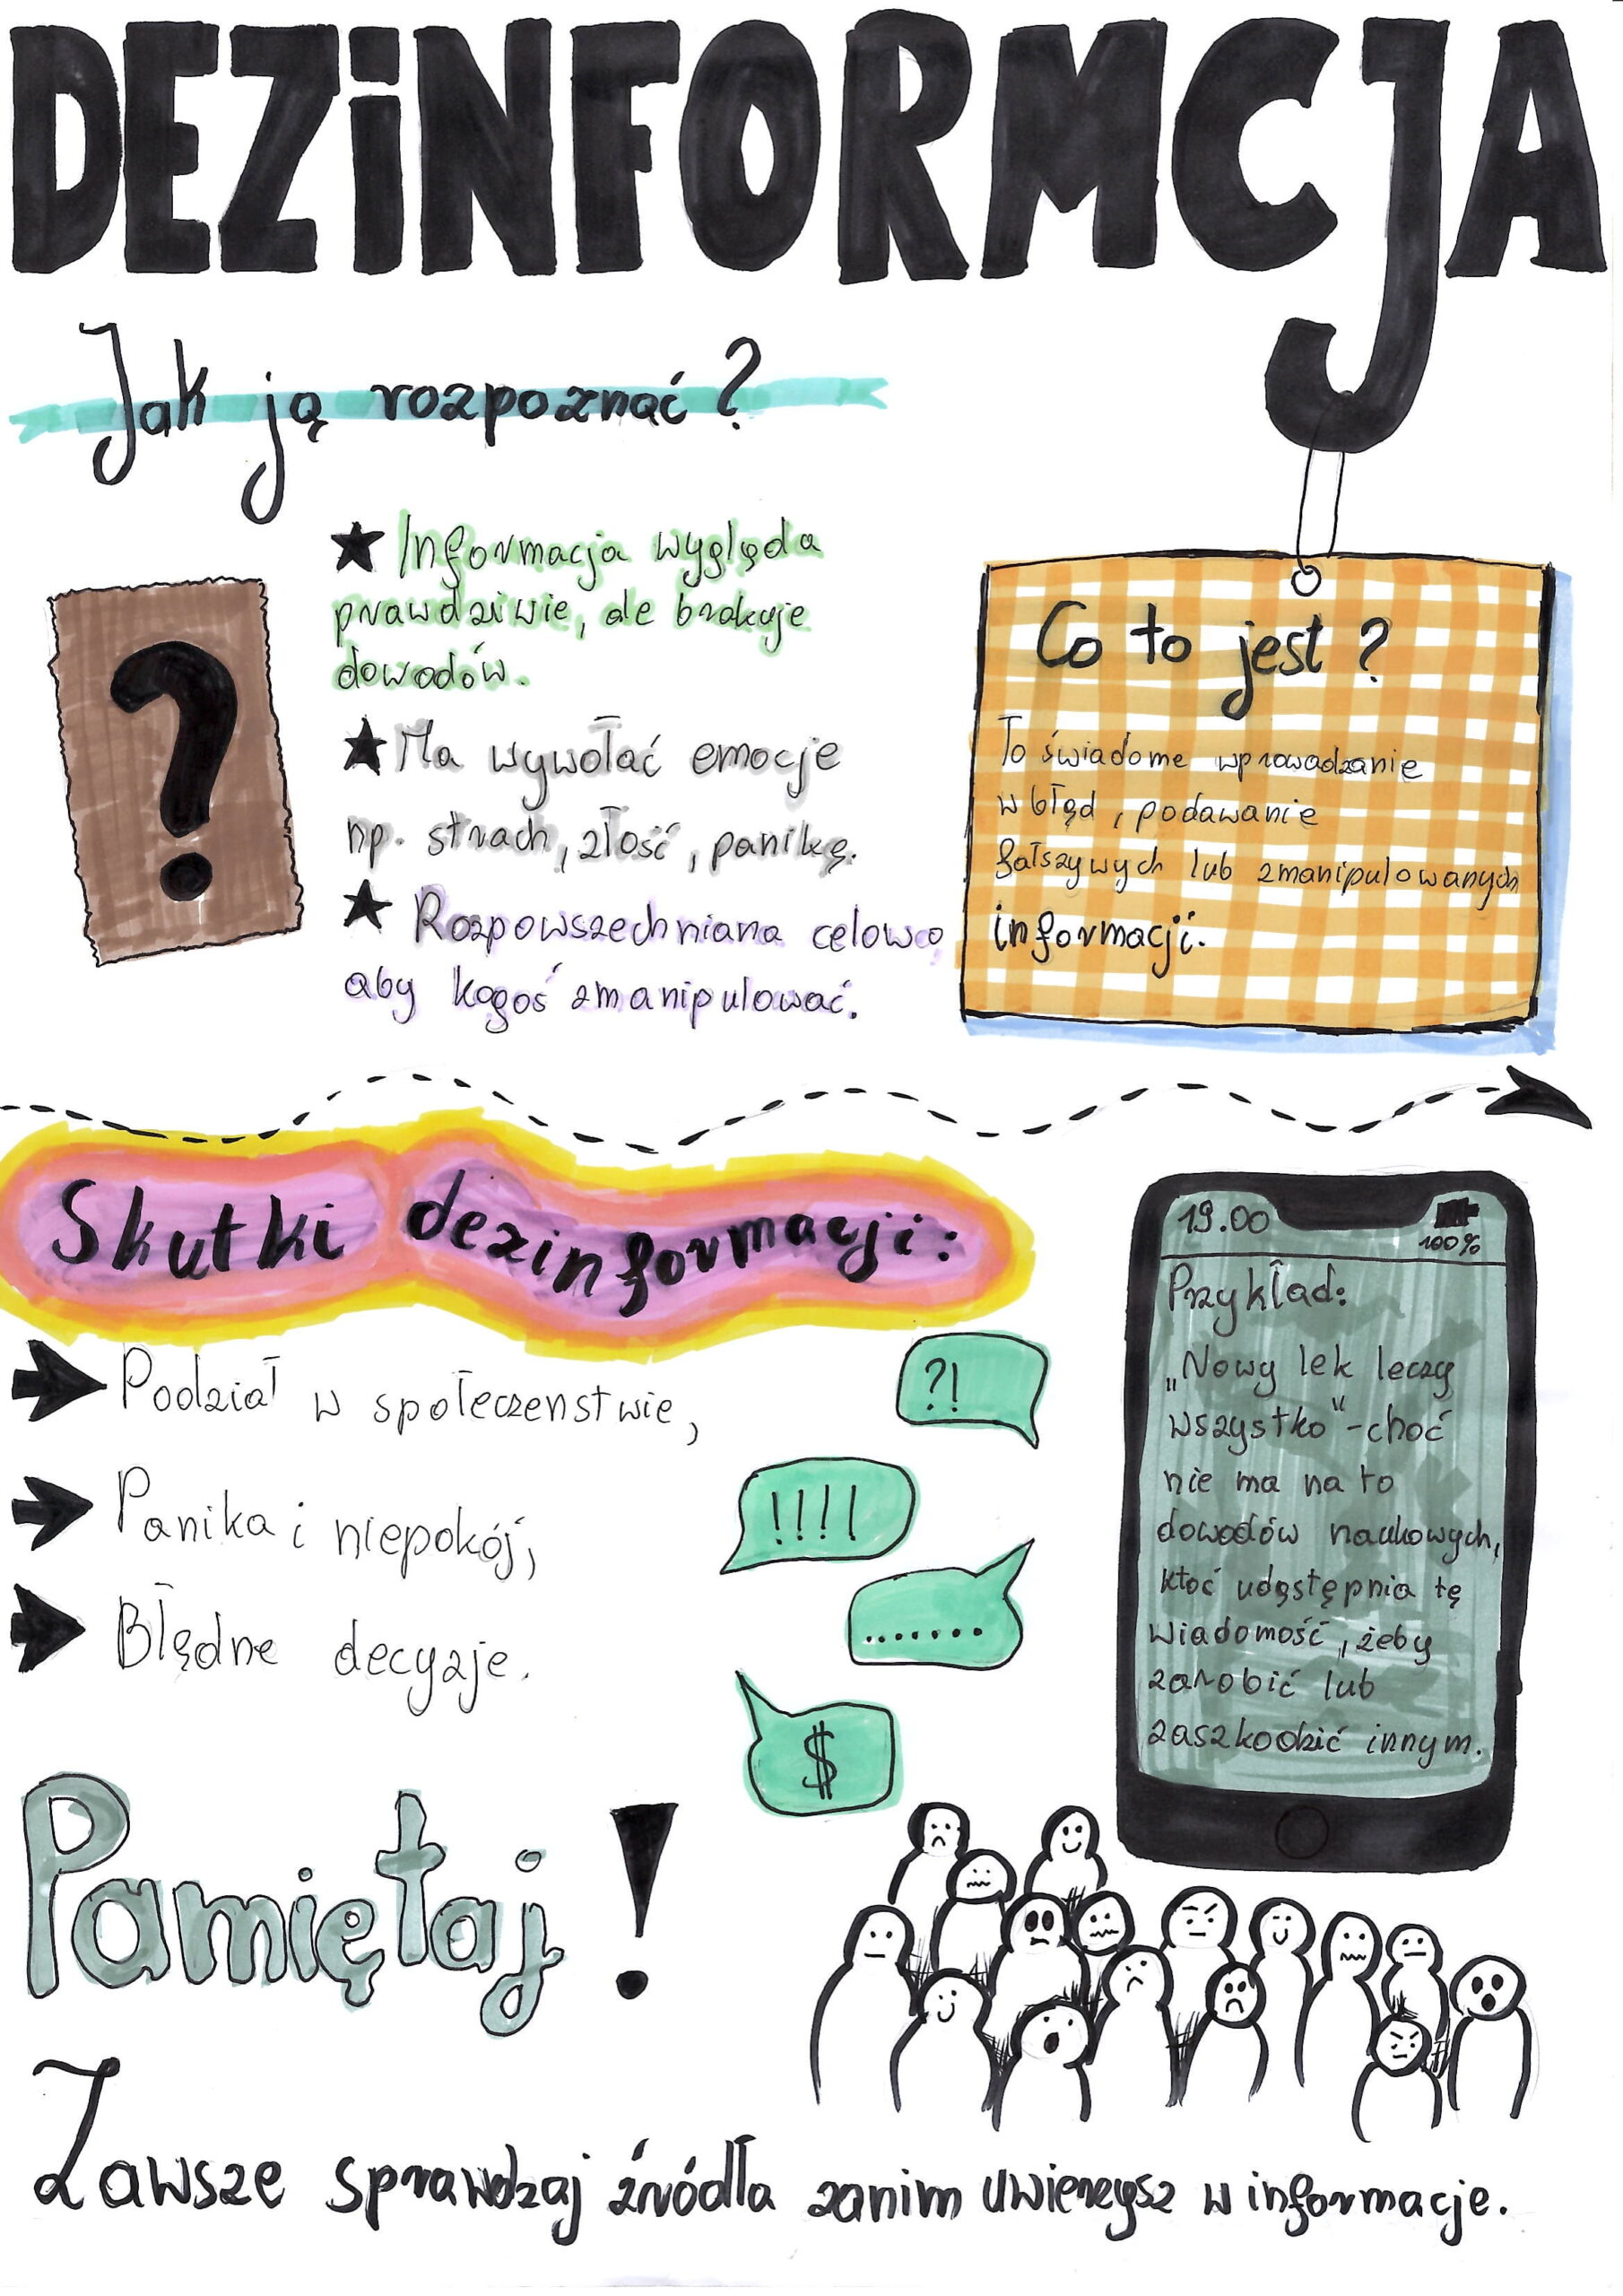 DEZiNFORMCJA
Jak ją rozpoznać?
★ Informacja wygląda
prawdziwie, ale brakuje
dowodów.
★ Ma wywołać emocje
np. strach, złość, panikę.
★ Rozpowszechniana celowo,
aby kogoś zmanipulować.
?
Co to jest?
To świadome wprowadzanie
w błąd, podawanie
fałszywych lub zmanipulowanych
informacji.
Skutki dezinformacji:
Podział w społeczenstwie,
Panika i niepokój,
Błędne decyzje.
?!
!!!!
.......
$
19.00
100%
Przykład:
„Nowy lek leczy
wszystko" - choć
nie ma na to
dowodów naukowych,
ktoć udostępnia tę
wiadomość, żeby
zarobić lub
zaszkodzić innym.
Pamiętaj!
Zawsze sprawdzaj źródła zanim uwierzysz w informacje.